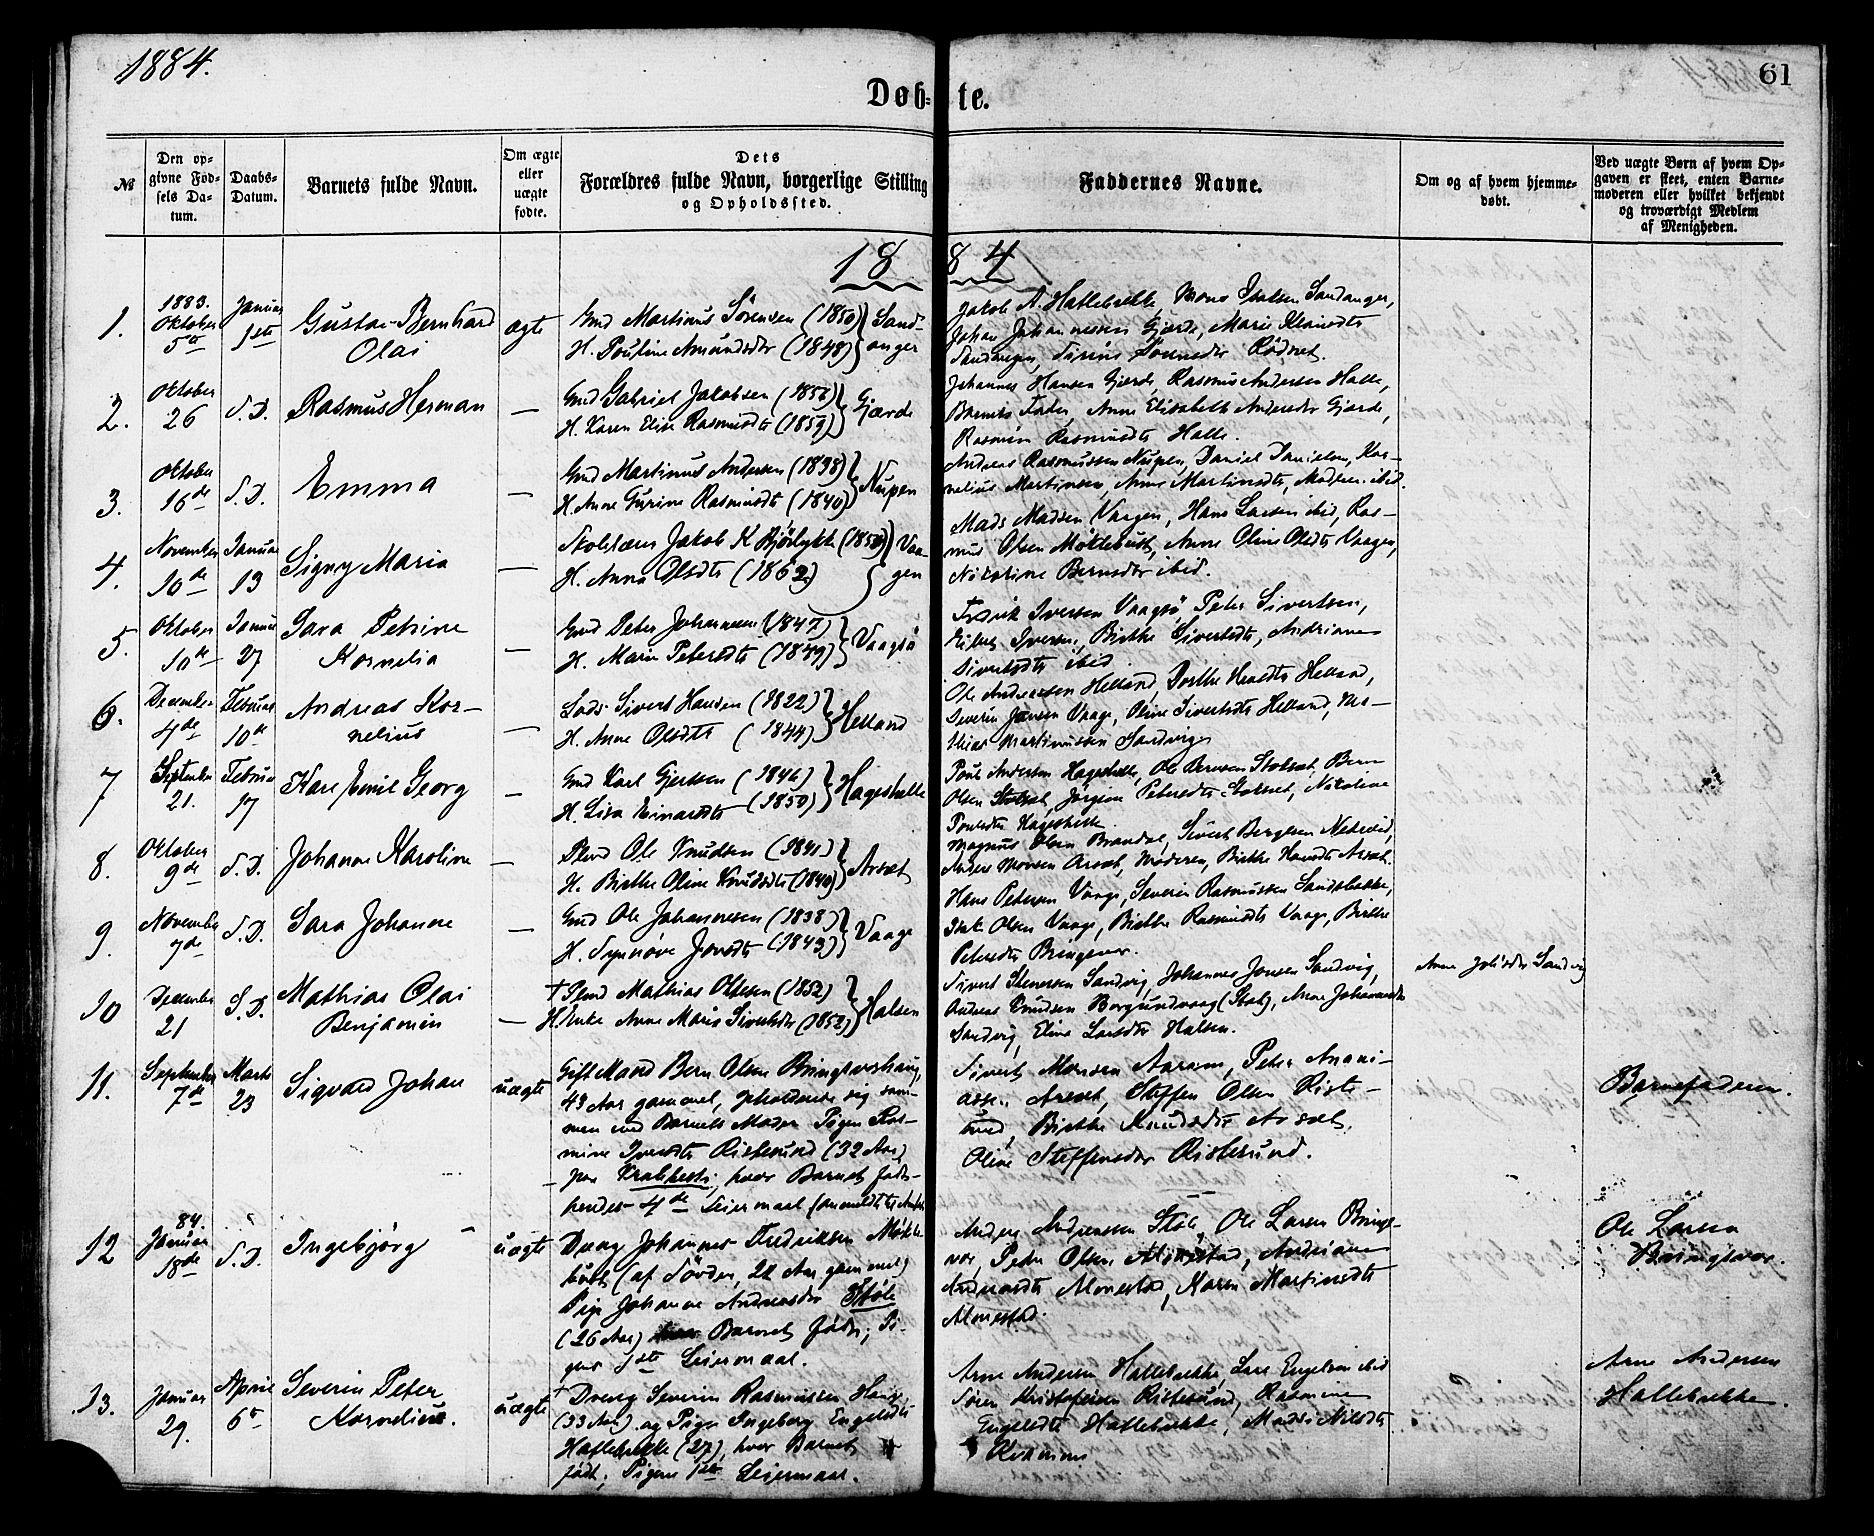 1884.
61
Døb-te.
№
Den op-
givne Fød-
sels Da-
tum.
Daabs-
Datum.
Barnets fulde Navn.
Om ægte
eller
uægte
fødte.
Dets
Forældres fulde Navn, borgerlige Stilling
og Opholdssted.
Faddernes Navne.
Om og af hvem hjemme-
døbt.
Ved uægte Børn af hvem Op-
gaven er skeet, enten Barne-
moderen eller hvilket bekjendt
og troværdigt Medlem
af Menigheden.
1884
1.
1883.
Oktober
5te
Januar
1ste
Gustav Bernhard
Olai
ægte
Gmd Martinus Sørensen (1850)
H. Pouline Amundsdtr (1848)
Sand-
anger
Jakob A. Hallebrekke, Mons Sandanger,
Johan Johannessen Gjærde, Marie
Sandanger, Rødset.
2.
Oktober
26
S.D.
Rasmus Herman
—
Gmd Gabriel Jakobsen (1856)
H. Karen Eline Rasmusdtr (1859)
Gjærde
Johannes Hansen Gjærde, Rasmus Andersen Halle,
Barnets Fader, Anne Elisabeth Andersdtr Gjærde,
Rasmine Rasmusdtr Halle.
3.
Oktober
16de
S.D.
Emma
—
Gmd Martinus Andersen (1838)
H. Anne Gurine Rasmusdtr (1840)
Nupen
Andreas Rasmussen Nupen, Daniel Danielsen, Kor-
nelius Martinsen, Anne Martinsdtr, Moderen ibid.
4.
November
10de
Januar
13
Signy Maria
—
Skolelærer Jakob K Bjørlykke (1850)
H. Anna Olsdtr (1862)
Vaa-
gen
Mads Madsen Vaagen, Hans Larsen ibid, Ras-
mus Olsen Møklebust, Anne Oline Olsdtr Vaagen,
Nikoline Berntsdtr ibid.
5.
Oktober
10de
Januar
27
Sara Petrine
Kornelia
—
Gmd Peter Johannesen (1847)
H. Marie Petersdtr (1849)
Vaagsø
Fredrik Iversen Vaagsø, Peter Sivertsen,
Iversen, Birthe Sivertsdtr, Andriane
Sivertsdtr ibid.
6.
December
4de
Februar
10de
Andreas Kor-
nelius
—
Lods Sivert Hansen (1822)
H. Anne Olsdtr (1844)
Helland
Ole Andreassen Helland, Dorthe Helland,
Severin Jonsen Vaage, Oline Sivertsdtr Helland, Ma-
thias Martinussen Sandvig
7
September
21.
Februar
17
Karl Emil Georg
—
Gmd Karl Gjertsen (1846)
H. Lisa Einarsdtr (1850)
Hageskelle
Poul Andersen Hageskelle, Ole Berntsen Stokset, Bern
Olsen Stokset, Jørgine Petersdtr Stokset, Nikoline
Poulsdtr Hageskelle.
8.
Oktober
9de
S.D.
Johanne Karoline
—
Ole Knudsen (1841)
H. Birthe Oline Knudsdtr (1840)
Aarset
Magnus Olsen Brandal, Sivert Bergesen
Anders Monsen Aarset, Moderen, Birthe Hansdtr Aarset.
9
November
7de
S.D.
Sara Johanne
—
Gmd Ole Johannesen (1838)
H. Synnøve Jonsdtr (1843)
Vaage
Hans Petersen Vaage, Severin Rasmussen Sandsbakke,
Olsen Vaage, Birthe Rasmusdtr Vaage, Birthe
Petersdtr Bringsvor.
10
December
21
S.D.
Mathias Olai
Benjamin
—
† Mathias Olsen (1852)
H. Enke Anne Maris Sivertsdtr (1852)
Halsen
Sivert Steensen Sandvig, Johannes Jonsen Sandvig,
Andreas Knudsen Borgundvaag (Stat), Anne Johannesdtr
Sandvig, Eline Larsdtr Halsen.
Anne Sandvig
11.
September
7de
Marts
23
Sigvald Johan
uægte
Gift Mand Bern Olsen Bringsvorhaug,
43 Aar gammel, opholdende sig sam-
men med Barnets Moder Pigen Ras-
mine Iversdtr Ristesund (32 Aar)
paa Krabbesti, hvor Barnet født.
hendes 4de Leiermaal
Sivert Monsen Aarsæt, Peter Anani-
assen Aarsæt, Steffen Olsen Riste-
sund, Birthe Knudsdtr Aarsæt,
Oline Steffensdtr Ristesund.
Barnefaderen.
12
84.
Januar
18de
S.D.
Ingebjørg
uægte
Dreng Johannes Fredriksen Møkle-
bust (af Søvde, 22 Aar gammel)
Pige Johanne Andreasdtr Støle
(26 Aar) hvor Barnet født; Pi-
gens 1ste Leiermaal.
Anders Andreassen Støle, Ole Larsen Brings-
vor, Peter Olsen Almestad, Andriane
Andreasdtr Almestad, Karen Martinsdtr
Almestad.
Ole Larsen
Bringsvor.
13.
Januar
29.
April
6te
Severin Peter
Kornelius.
uægte
† Dreng Severin Rasmussen Hauge
(33 Aar) og Pige Ingeborg Engelsdtr
Hallebrekke (27), hvor Barnet
født; Pigens 1ste Leiermaal.
Arne Andersen Hallebrekke, Lars Engelsen ibid
Søren Kristofersen Ristesund, Rasmine
Engelsdtr Hallebrekke, Nilsdtr
Kvamme
Arne Andersen
Hallebrekke.